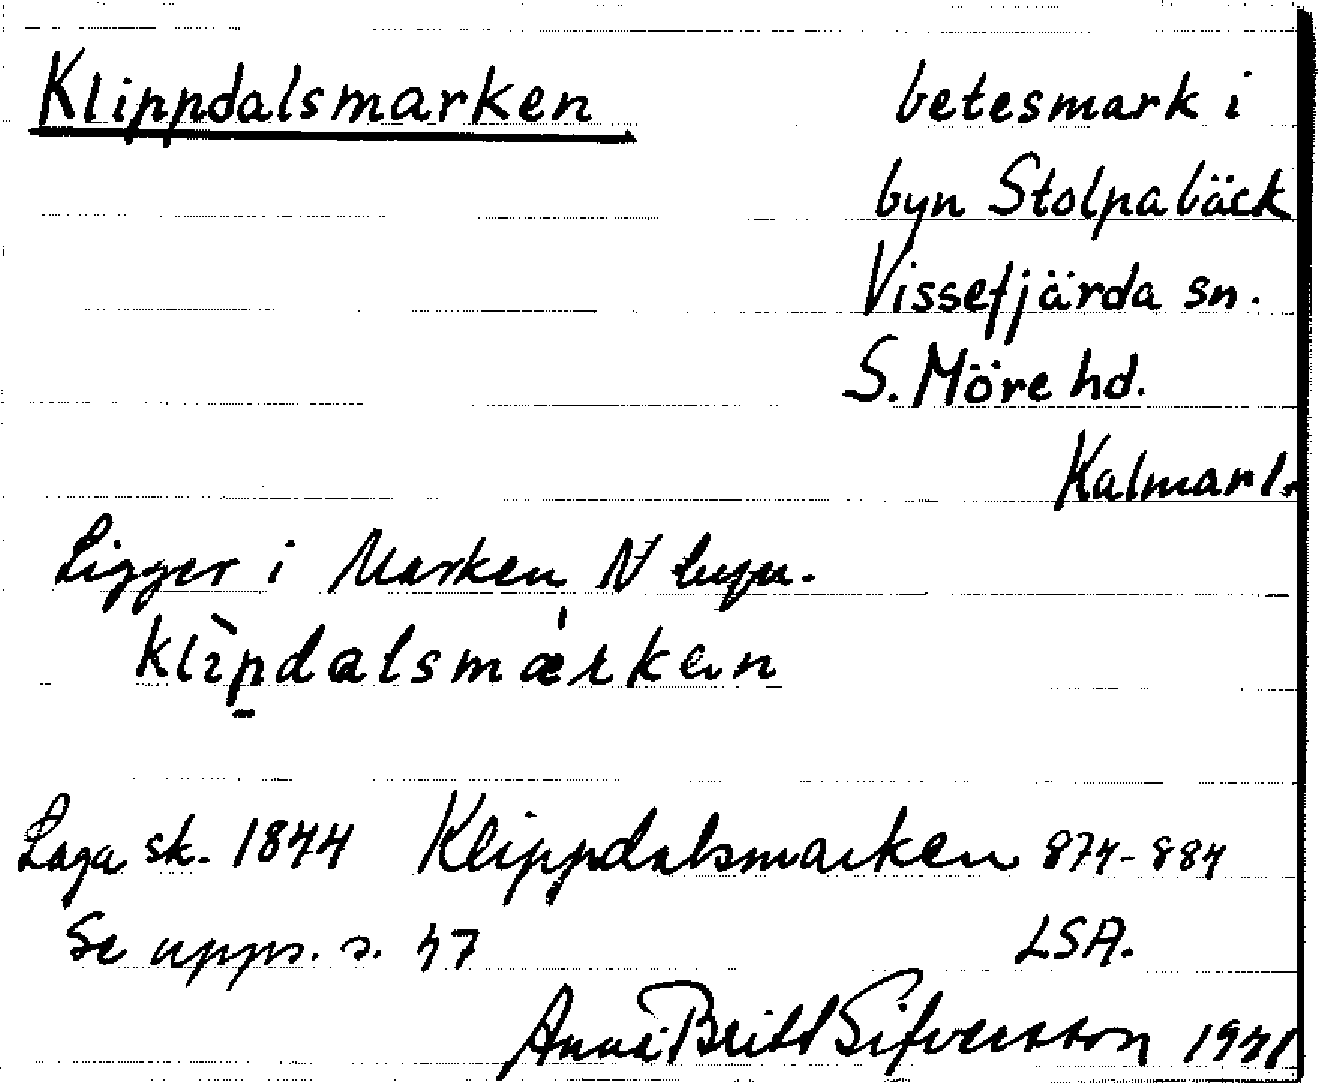 Klippdalsmarken betesmark i
byn Stolpabäck
Vissefjärda sn.
S. Möre hd.
Kalmar l.
Ligger i Marken N byn.
klìpdalsmárkæn
Laga sk. 1844 Klippdalsmarken 874-884
Se upps. s. 47 LSA.
Anna Britt Sifversson 1941